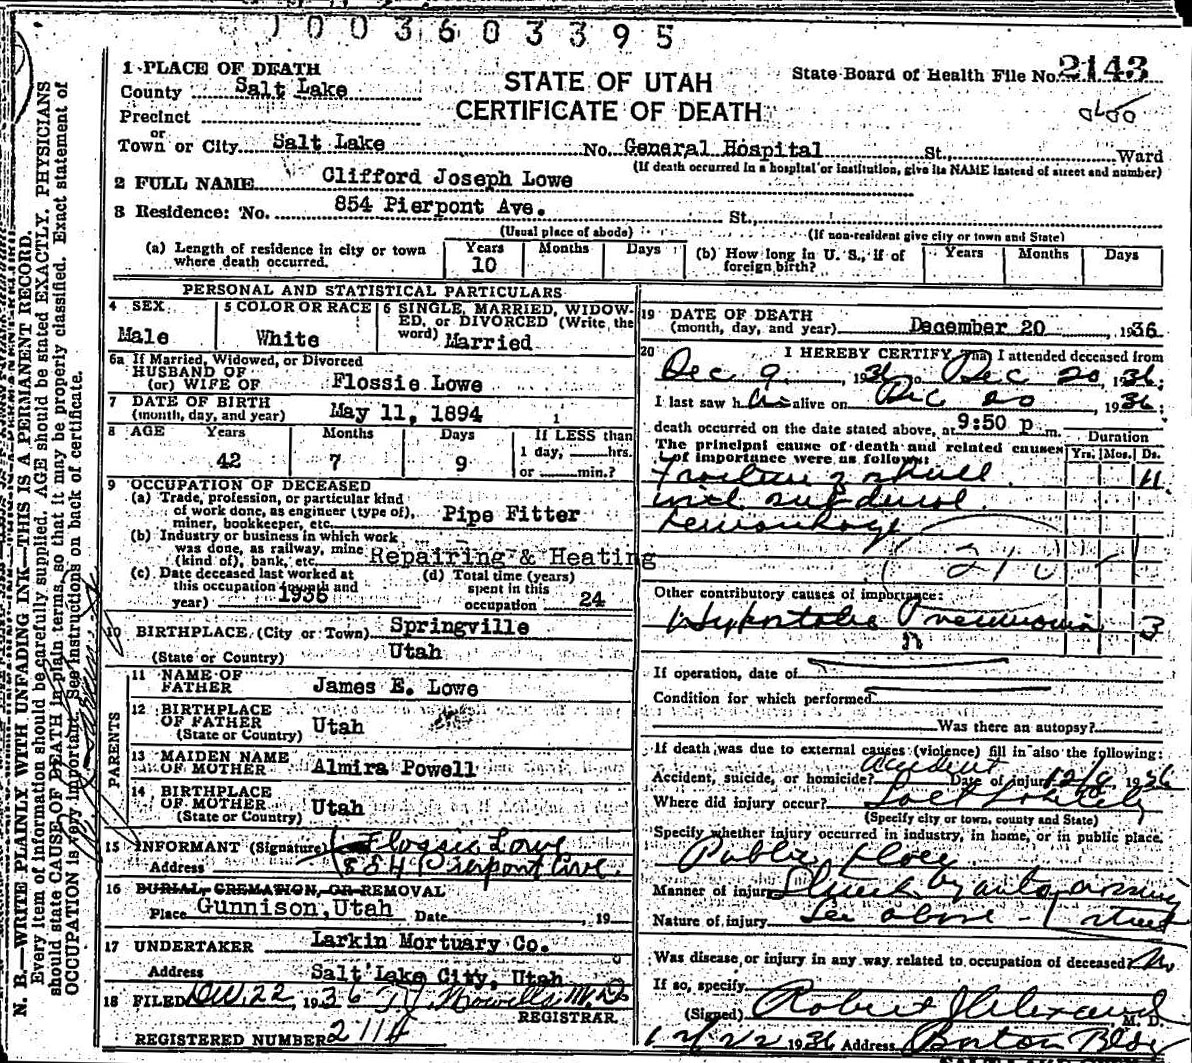 1003603395
1 PLACE OF DEATH
County Salt Lake
STATE OF UTAH
CERTIFICATE OF DEATH
State Board of Health File No. 2143
Precinct
or
Town or City Salt Lake No. General Hospital St., Ward
(If death occurred in a hospital or institution, give its NAME instead of street and number)
2 FULL NAME Clifford Joseph Lowe
3 Residence: No. 854 Pierpont Ave. St.
(Usual place of abode) (If non-resident give city or town and State)
(a) Length of residence in city or town where death occurred. Years 10 Months Days
(b) How long in U. S., if of foreign birth? Years Months Days
PERSONAL AND STATISTICAL PARTICULARS
4 SEX Male
5 COLOR OR RACE White
6 SINGLE, MARRIED, WIDOWED, or DIVORCED (Write the word) Married
6a If Married, Widowed, or Divorced
HUSBAND OF
(or) WIFE OF Flossie Lowe
7 DATE OF BIRTH
(month, day, and year) May 11, 1894
8 AGE Years 42 Months 7 Days 9 If LESS than 1 day, hrs. or min.?
9 OCCUPATION OF DECEASED
(a) Trade, profession, or particular kind of work done, as engineer (type of), miner, bookkeeper, etc. Pipe Fitter
(b) Industry or business in which work was done, as railway, mine (kind of), bank, etc. Repairing & Heating
(c) Date deceased last worked at this occupation (month and year) 1936
(d) Total time (years) spent in this occupation 24
10 BIRTHPLACE (City or Town) Springville
(State or Country) Utah
PARENTS
11 NAME OF FATHER James E. Lowe
12 BIRTHPLACE OF FATHER
(State or Country) Utah
13 MAIDEN NAME OF MOTHER Almira Powell
14 BIRTHPLACE OF MOTHER
(State or Country) Utah
15 INFORMANT (Signature) Flossie Lowe
Address 854 Pierpont Ave.
16 BURIAL, CREMATION, OR REMOVAL
Place Gunnison, Utah Date , 19
17 UNDERTAKER Larkin Mortuary Co.
Address Salt Lake City, Utah
18 FILED Dec. 22 1936 M.D.
REGISTRAR.
REGISTERED NUMBER 2114
19 DATE OF DEATH
(month, day, and year) December 20, 1936
20 I HEREBY CERTIFY That I attended deceased from
Dec 9, 1936 to Dec 20, 1936;
I last saw him alive on Dec 20, 1936;
death occurred on the date stated above, at 9:50 p m.
The principal cause of death and related causes of importance were as follows: Duration Yrs. Mos. Ds.
Fracture of skull 11
with subdural
hemorrhage
210
Other contributory causes of importance:
Hypostatic Pneumonia 3
If operation, date of
Condition for which performed
Was there an autopsy?
If death was due to external causes (violence) fill in also the following:
Accident, suicide, or homicide? accident Date of injury 12/9 1936
Where did injury occur? Salt Lake City
(Specify city or town, county and State)
Specify whether injury occurred in industry, in home, or in public place.
Public place
Manner of injury Struck by auto crossing street
Nature of injury See above
Was disease or injury in any way related to occupation of deceased? No
If so, specify
(Signed) Robert J Alexander M. D.
12/22 1936 Address Boston Bldg
N. B.—WRITE PLAINLY WITH UNFADING INK—THIS IS A PERMANENT RECORD.
Every item of information should be carefully supplied. AGE should be stated EXACTLY. PHYSICIANS
should state CAUSE OF DEATH in plain terms, so that it may be properly classified. Exact statement of
OCCUPATION is very important. See instructions on back of certificate.